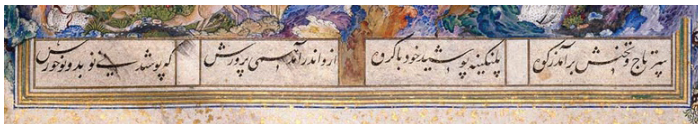 سر تاج و تختش برآمد ز کوه پلنگینه پوشید خود با گروه ازو اندر آمد همی پرورش که پوشیدنی نو بد و نو خورش